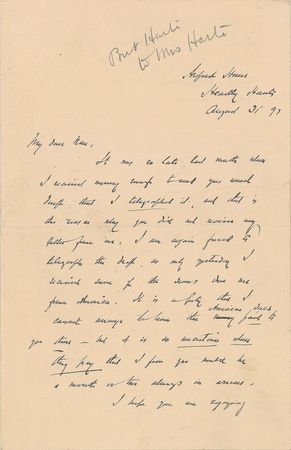 Bret Harte
to Mrs Harte
Arford House
Headley, Hants
August 31 97
My dear Nan,
It was so late last month when
I received money enough to send you usual
draft that I telegraphed it, and that is
the reason why you did not receive any
letter from me. I am again forced to
telegraph the draft, as only yesterday I
received some of the sums due me
from America. It is a pity that I
cannot arrange to have the American dues paid to
you there — but it is so uncertain when
they pay that I fear you would be
a month or two always in arrears.
I hope you are enjoying